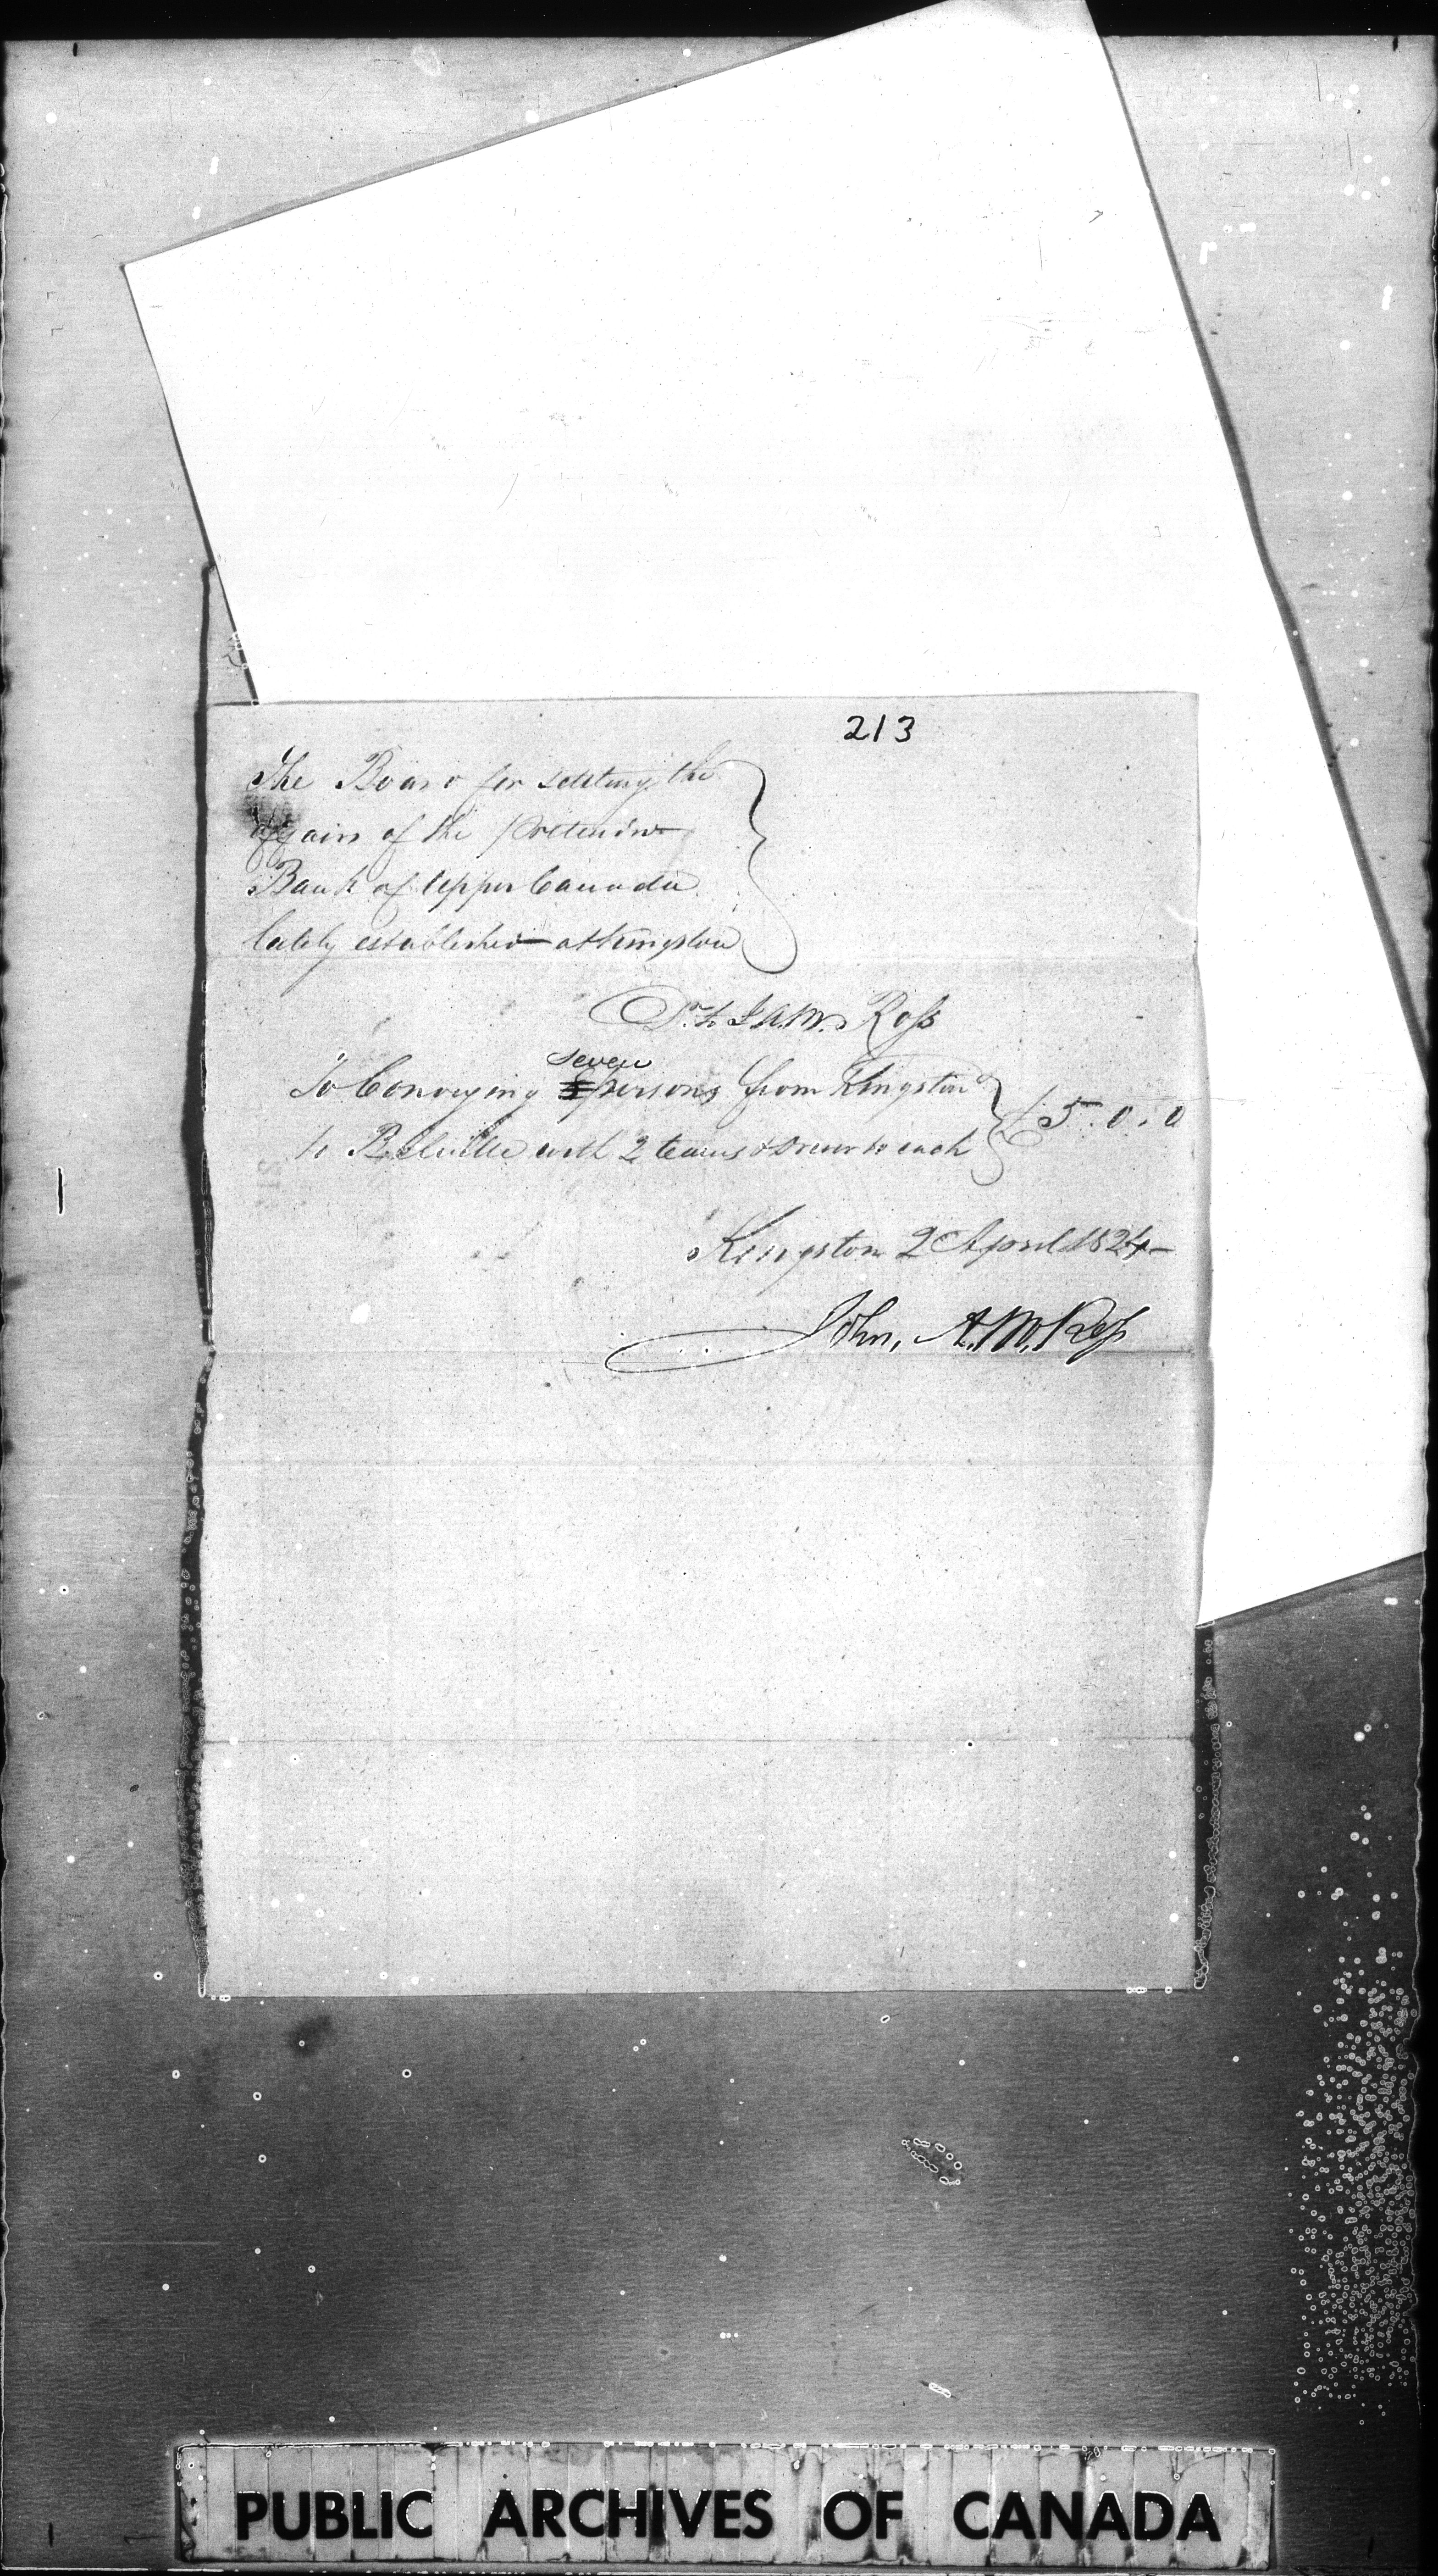 213
The Board for settling the
affairs of the pretended
Bank of Upper Canada
lately established at Kingston
Dr. to J. A. M. Ross
seven
To Conveying persons from Kingston
to Belleville with 2 teams & to each
£5.0.0
Kingston 2 April 1824
John, A. M. Ross
PUBLIC ARCHIVES OF CANADA